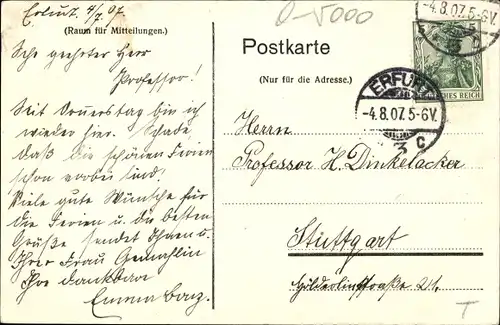 Erfurt 4/7. 07.
(Raum für Mitteilungen.)
Sehr geehrter Herr
Professor!
Seit Donnerstag bin ich
wieder hier. Schade,
daß die schönen Ferien
schon vorbei sind!
Viele gute Wünsche für
die Ferien u. die besten
Grüße sendet Ihnen u.
Ihrer Frau Gemahlin
Ihre dankbare
Emma
0-5000
Postkarte
(Nur für die Adresse.)
-4.8.07.5-6V.
DEUTSCHES REICH
ERFURT
-4.8.07.5-6V.
3 C
Herrn
Professor H. Dinkelacker
Stuttgart
Hölderlinstraße 24.
T